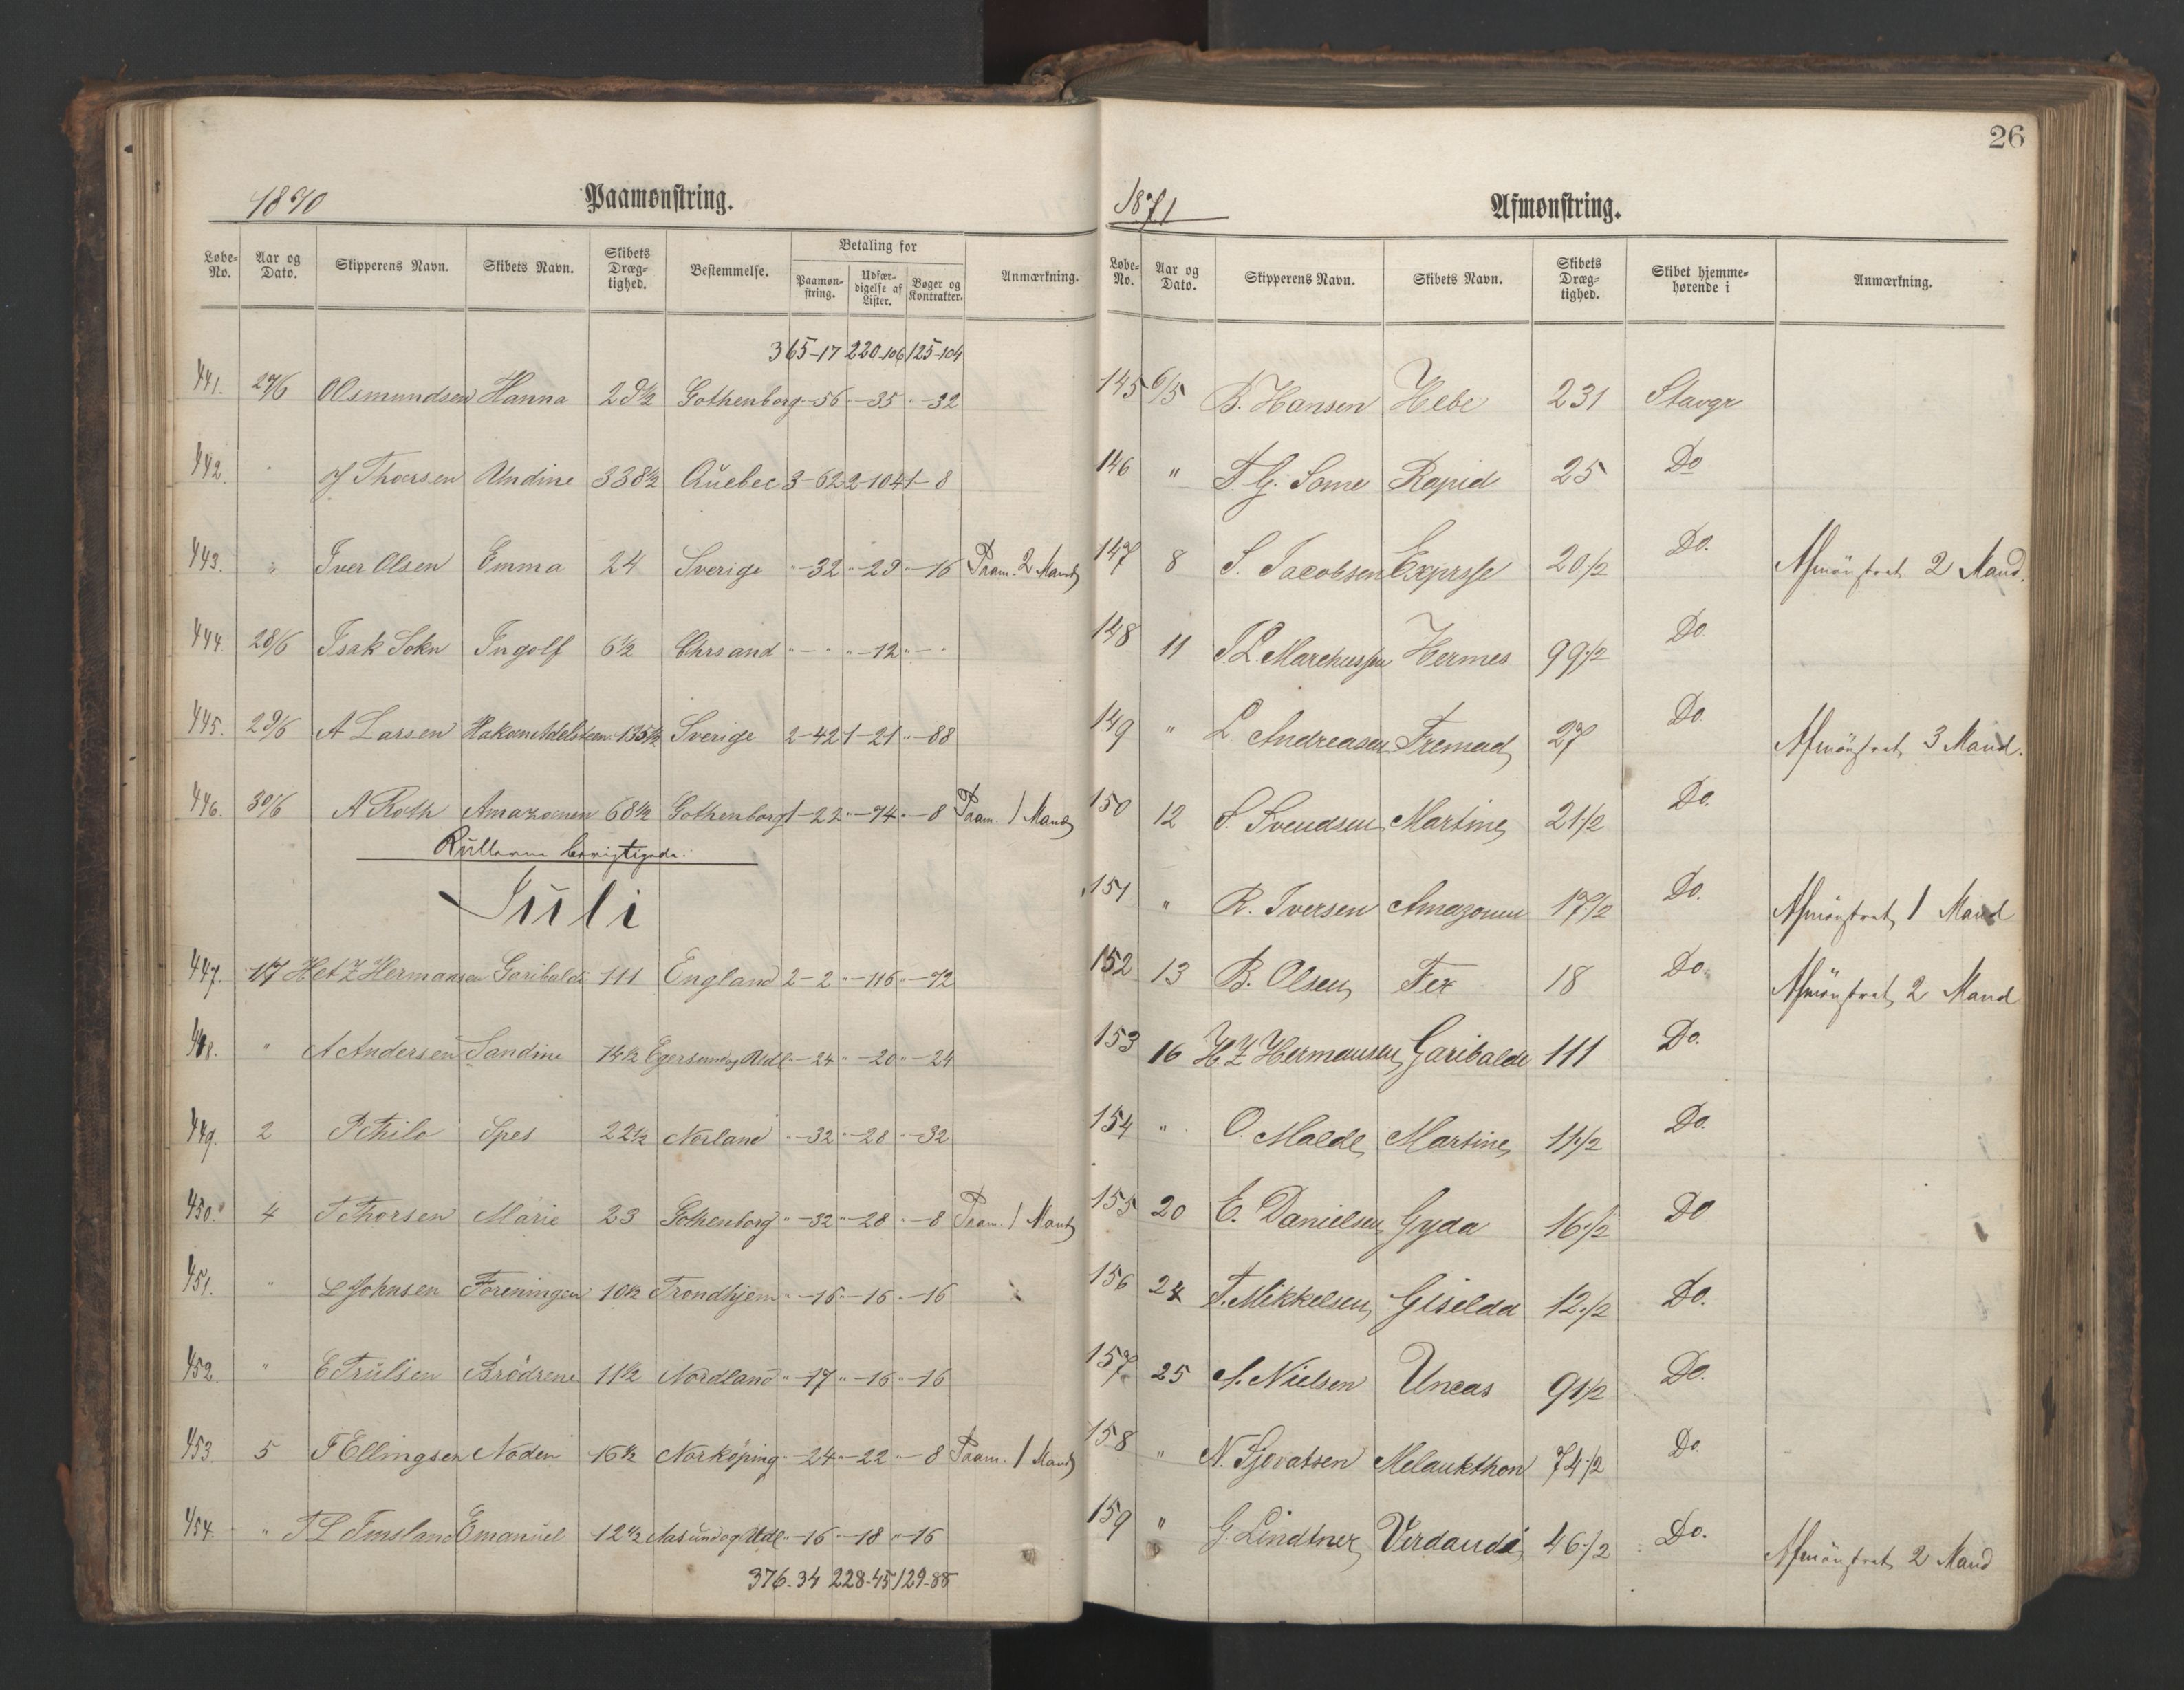 1870 Paamønstring.
Løbe-No. Aar og Dato. Skipperens Navn. Skibets Navn. Skibets Dræg-tighed. Bestemmelse. Betaling for Paamøn-string. Udfær-digelse af Lister. Bøger og Kontrakter. Anmærkning.
365-17 220-106 125-104
441. 27/6 O Osmundsen Hanna 29½ Gothenborg "-56 "-35 "-32
442. " J Thorsen Undine 338½ Quebec 3-62 2-104 1-8
443. " Iver Olsen Emma 24 Sverige "-32 "-29 "-16 Paam. 2 Mand
444. 28/6 Isak Sokn Ingolf 6½ Chrsand "-" "-12 "-"
445. 29/6 A Larsen Hakon Adelsteen 135½ Sverige 2-42 1-21 "-88
446. 30/6 A Roth Amazonen 68½ Gothenborg 1-22 "-74 "-8 Paam. 1 Mand
Rullerne berigtigede.
Juli
447. 1/7 H Z Hermansen Garibaldi 111 England 2-2 "-116 "-72
448. " A Andersen Sandine 14½ Egersund og Udl "-24 "-20 "-24
449. 2 P Thilo Spes 22½ Norland "-32 "-28 "-32
450. 4 T Thorsen Marie 23 Gothenborg "-32 "-28 "-8 Paam. 1 Mand
451. " L Johnsen Foreningen 10½ Trondhjem "-16 "-16 "-16
452. " E Trulsen Brödrene 11½ Nordland "-17 "-16 "-16
453. 5 T Ellingsen Noden 16½ Norköping "-24 "-22 "-8 Paam. 1 Mand
454. " T L Imsland Emanuel 12½ Aasund og Udl "-16 "-18 "-16
376-34 228-45 129-88
26
1871 Afmønstring.
Løbe-No. Aar og Dato. Skipperens Navn. Skibets Navn. Skibets Dræg-tighed. Skibet hjemme-hørende i Anmærkning.
145 6/5 B. Hansen Hebe 231 Stavgr
146 " T. G. Some Rapid 25 Do
147 8 S. Jacobsen Exprsse 20½ Do. Afmönstret 2 Mand.
148 11 T L. Marchussen Hermes 99½ Do.
149 " L Andreasen Fremad 27 Do Afmönstret 3 Mand.
150 12 S. Svendsen Martine 21½ Do.
151 " R. Iversen Amazonen 17½ Do. Afmönstret 1 Mand
152 13 B. Olsen Fex 18 Do. Afmönstret 2 Mand
153 16 H. Z Hermansen Garibaldi 111 Do.
154 " O. Malde Martine 11½ Do.
155 20 E. Danielsen Gyda 16½ Do
156 24 T. Mikkelsen Giselda 12½ Do.
157 25 A. Nielsen Uncas 91½ Do.
158 " N. Sjovatsen Melankthon 74½ Do.
159 " G. Lindtner Verdandi 46½ Do. Afmönstret 2 Mand